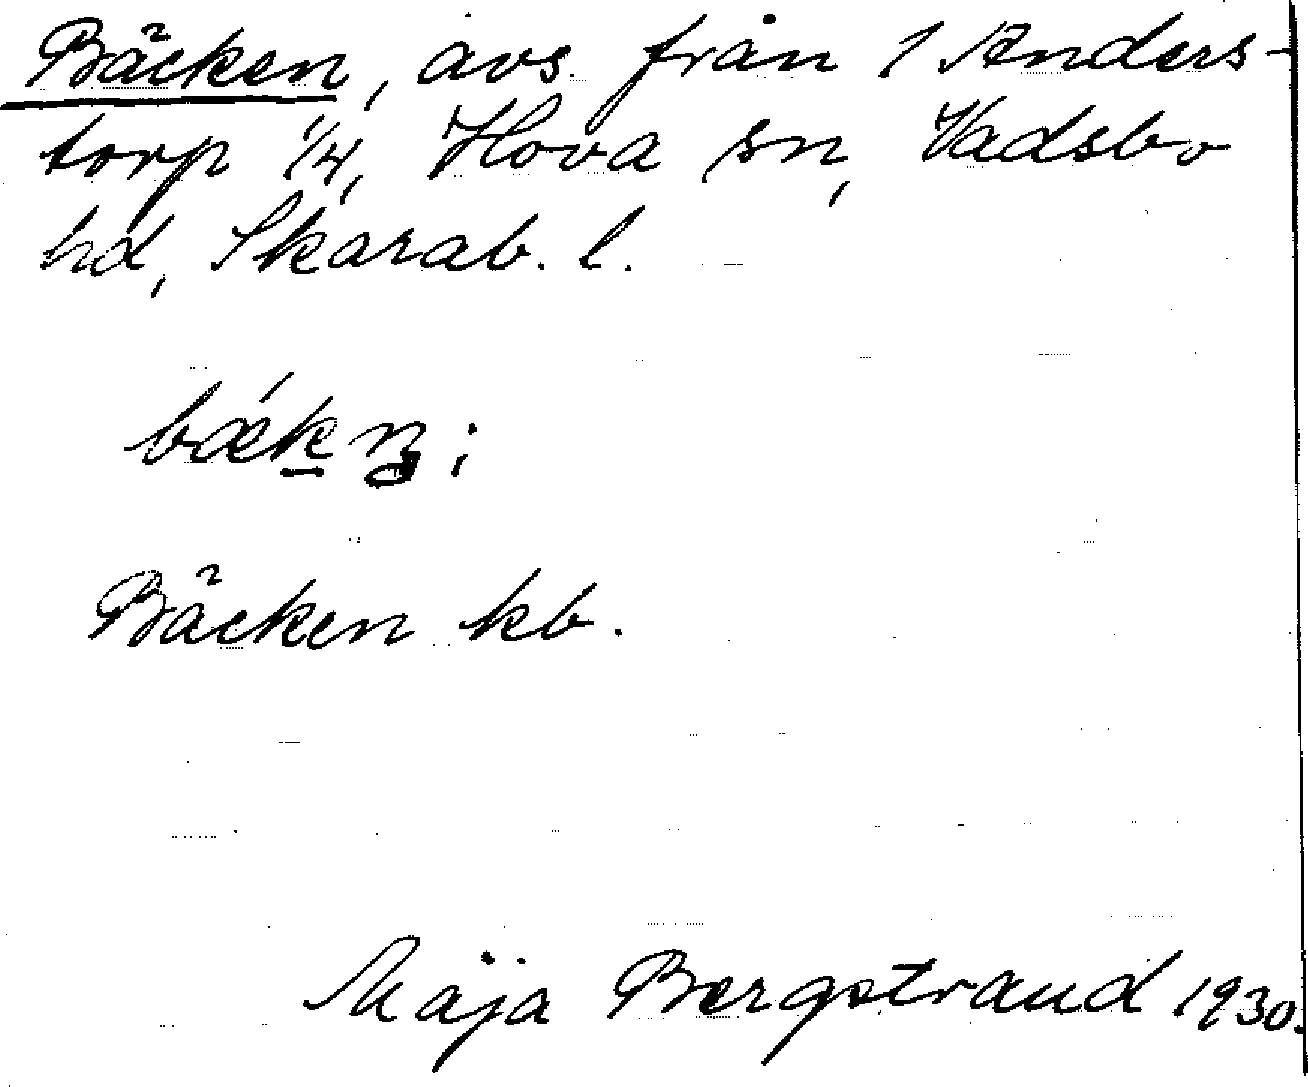 Bäcken, avs. från 1 Anders-
torp 1/4, Hova sn, Vadsbo
hd, Skarab. l.
bǽk̲n̥;
Bäcken kb.
Maja Bergstrand 1930.